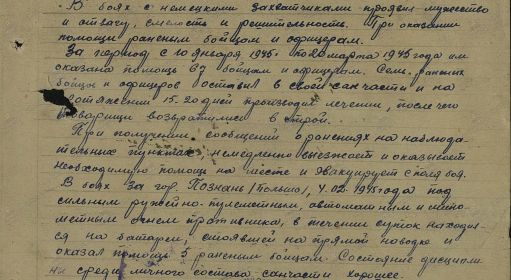 В боях с немецкими захватчиками проявил мужество
и отвагу, смелость и решительность. При оказании
помощи раненым бойцам и офицерам.
За период с 10 января 1945г. по 20 марта 1945 года им
оказана помощь 67 бойцам и офицерам. Семь раненых
бойцов и офицеров оставил в своей санчасти и на
протяжении 15-20 дней производил лечение, после чего
товарищи возвратились в строй.
При получении сообщений о ранениях на наблюда-
тельных пунктах, немедленно выезжает и оказывает
необходимую помощь на месте и эвакуирует с поля боя.
В боях за гор. Познань /Польша/, 4.02.1945 года под
сильным ружейно-пулеметным, автоматным и мино-
метным огнем противника, в течении суток находил-
ся на батареи, стоявшей на прямой наводке и
оказал помощь 5 раненым бойцам. Состояние дисципли-
ны среди личного состава санчасти хорошее.